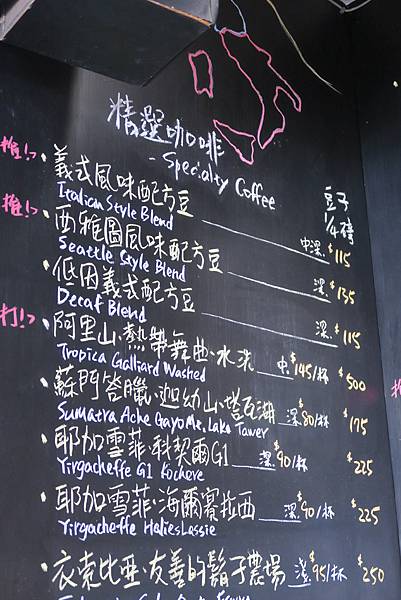 精選咖啡
- Specialty Coffee
豆子
1/4磅
推!›
義式風味配方豆
Italian Style Blend
中深. $115
推!›
西雅圖風味配方豆
Seattle Style Blend
深. $135
低因義式配方豆
Decaf Blend
深. $115
打!›
阿里山.熱帶舞曲.水洗 中. $145/杯 $500
Tropica Galliard Washed
蘇門答臘.迦幼山.塔瓦湖 深 $80/杯 $175
Sumatra Ache Gayo Mt. Lake Tawer
耶加雪菲.科契爾G1 淺. $90/杯 $225
Yirgacheffe G1 Kochere
耶加雪菲.海爾賽拉西 淺. $90/杯 $225
Yirgacheffe HaileSlassie
衣索比亞.友善的鬍子農場 淺 $95/杯 $250